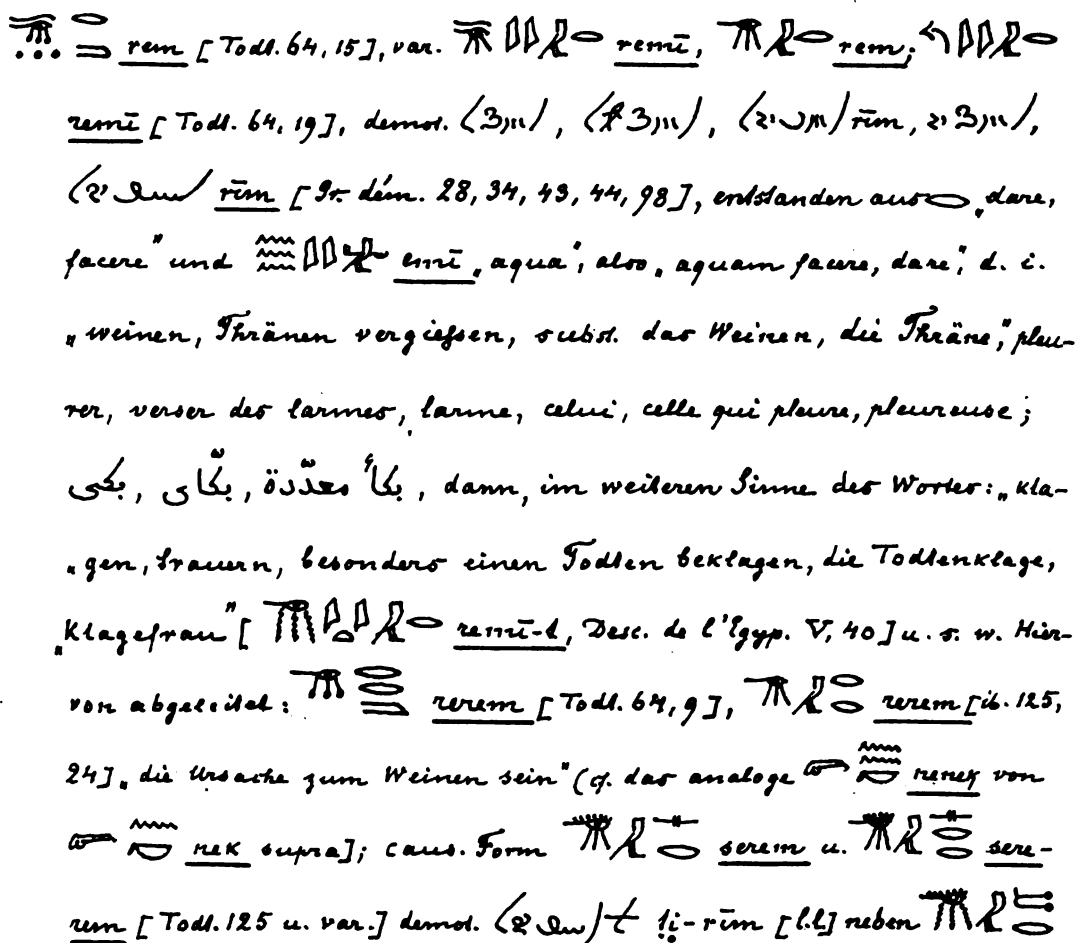 rem [Todt. 64, 15], var. remī, rem;
remī [Todt. 64, 19], demot. rīm,
rīm [Gr. dém. 28, 34, 43, 44, 98], entstanden aus „dare,
facere" und emī „aqua", also „aquam facere, dare", d. i.
„weinen, Thränen vergiessen, subst. das Weinen, die Thräne", pleu-
rer, verser des larmes, larme, celui, celle qui pleure, pleureuse;
بكى, بكّاى, معدّدة بكاء, dann, im weiteren Sinne des Wortes: „kla-
„gen, trauern, besonders einen Todten beklagen, die Todtenklage,
„Klagefrau" [ remī-t, Desc. de l'Egyp. V, 40] u. s. w. Hier-
von abgeleitet: rerem [Todt. 64, 9], rerem [ib. 125,
24] „die Ursache zum Weinen sein" (cf. das analoge nenek von
nek supra]; caus. Form serem u. sere-
rem [Todt. 125 u. var.] demot. ti-rīm [l.l] neben